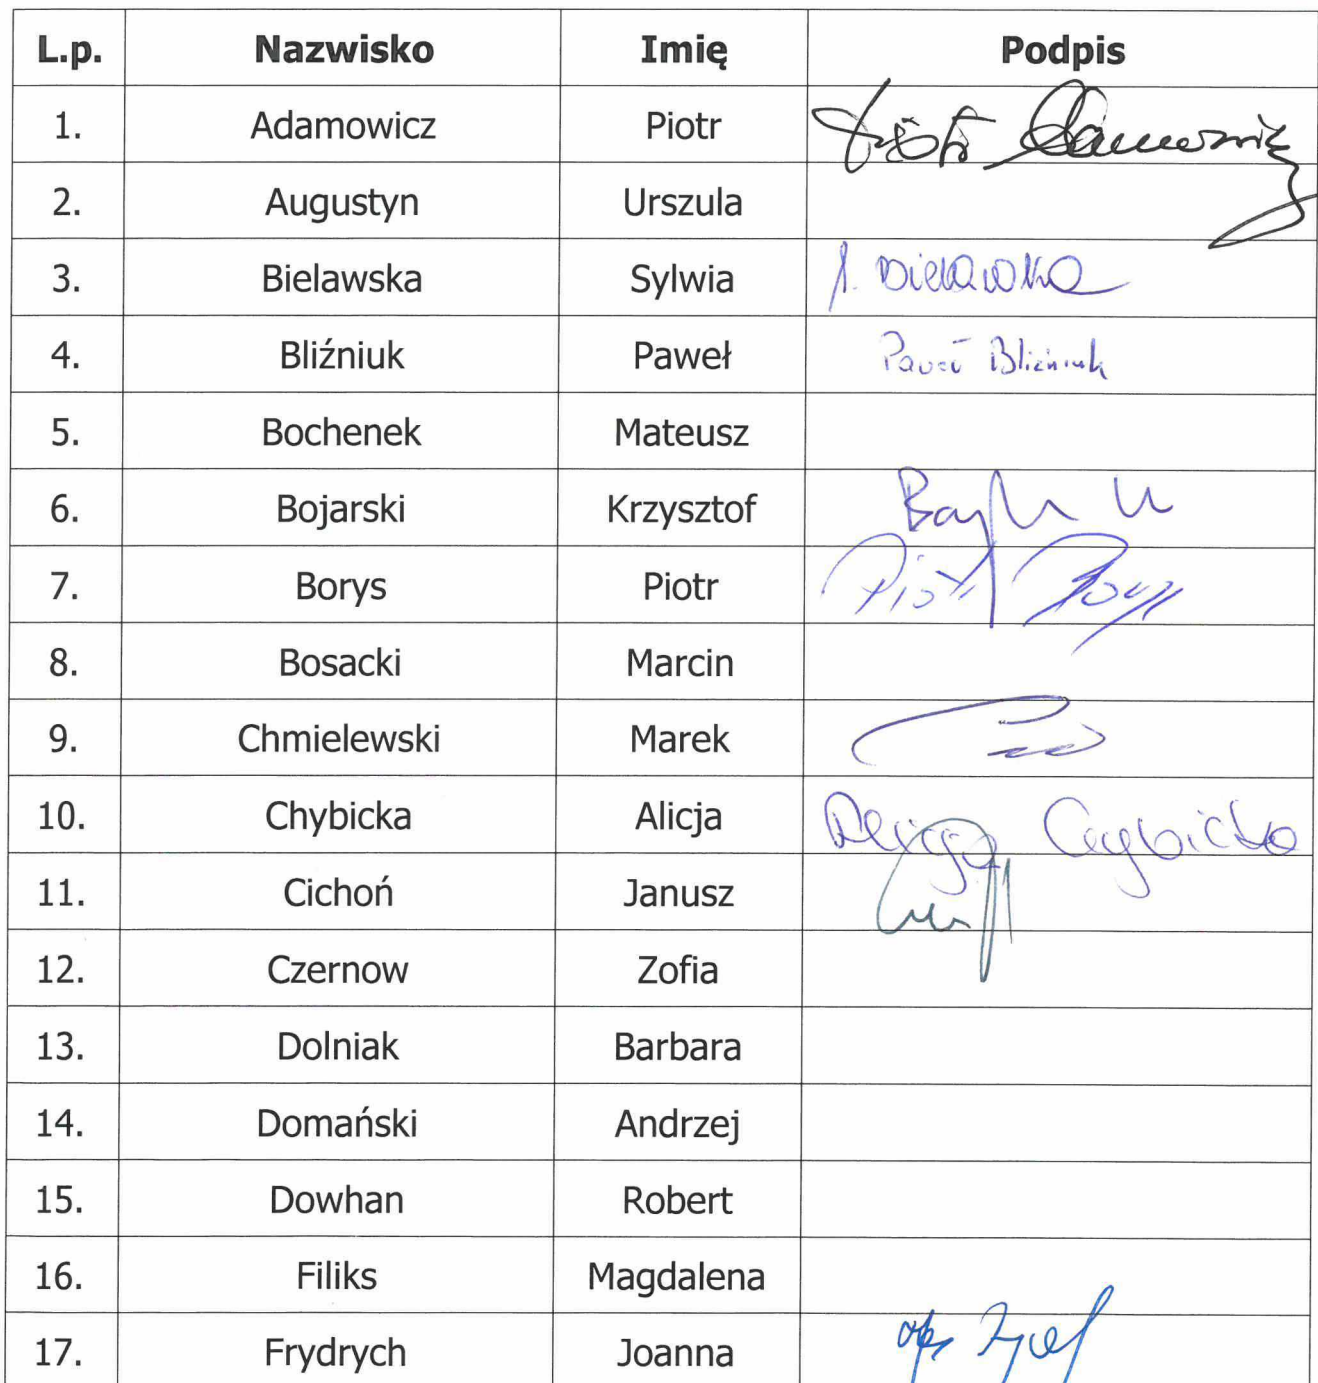 L.p. Nazwisko Imię Podpis
1. Adamowicz Piotr Piotr Adamowicz
2. Augustyn Urszula
3. Bielawska Sylwia S. Bielawska
4. Bliźniuk Paweł Paweł Bliźniuk
5. Bochenek Mateusz
6. Bojarski Krzysztof
7. Borys Piotr Piotr Borys
8. Bosacki Marcin
9. Chmielewski Marek
10. Chybicka Alicja Alicja Chybicka
11. Cichoń Janusz
12. Czernow Zofia
13. Dolniak Barbara
14. Domański Andrzej
15. Dowhan Robert
16. Filiks Magdalena
17. Frydrych Joanna